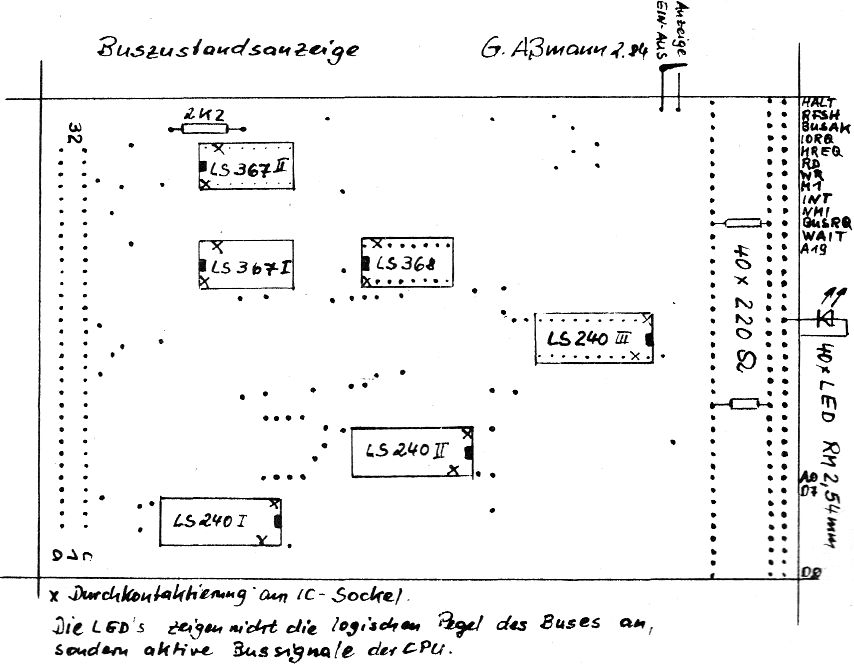 Buszustandsanzeige
G. Aßmann 2.84
Anzeige
EIN-AUS
32
2K2
LS 367 II
LS 367 I
LS 368
LS 240 III
LS 240 II
LS 240 I
40 x 220 Ω
HALT
RFSH
BUSAK
IORQ
MREQ
RD
WR
M1
INT
NMI
BUSRQ
WAIT
A19
40 x LED RM 2,54mm
A0
D7
D0
x Durchkontaktierung am IC-Sockel.
Die LED's zeigen nicht die logischen Pegel des Buses an,
sondern aktive Bussignale der CPU.